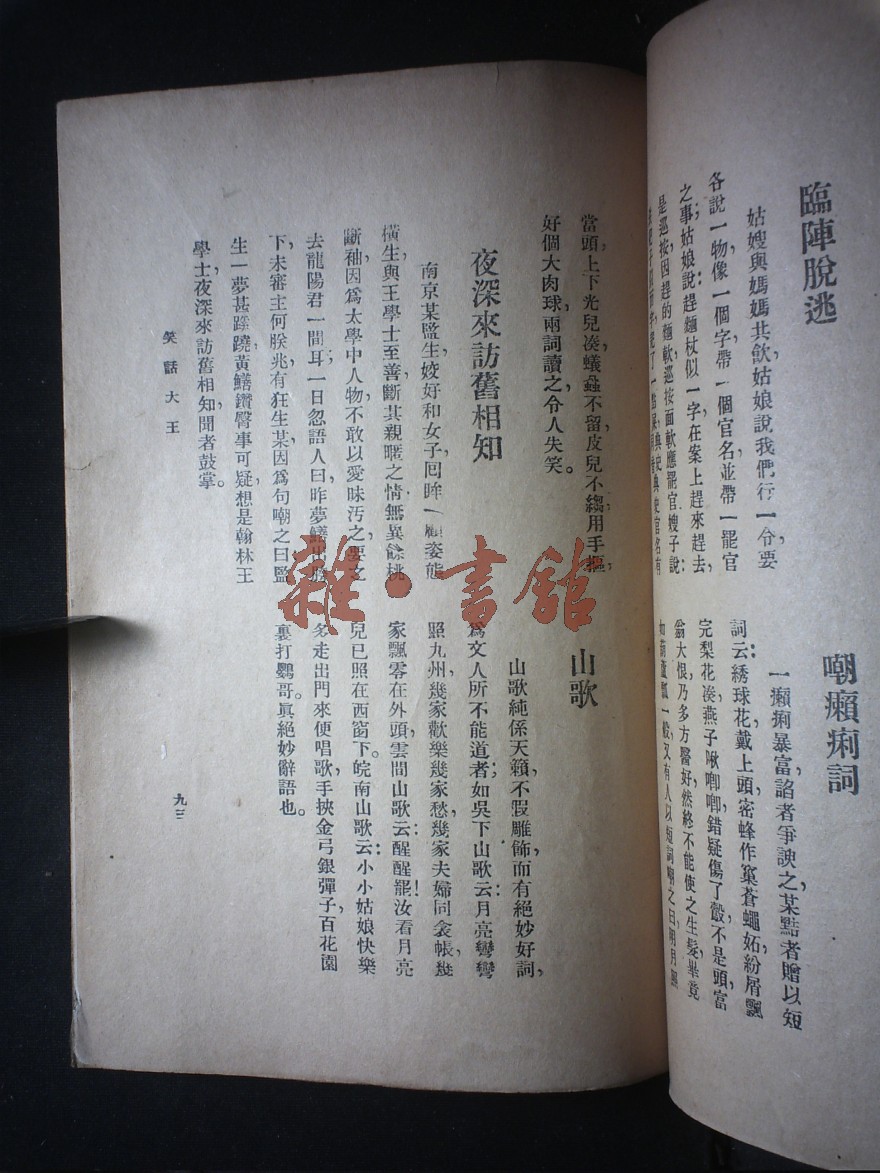 臨陣脫逃
姑嫂與媽媽共飲姑娘說我們行一令要
各說一物像一個字帶一個官名並帶一罷官
之事;姑娘說趕麵杖似一字在案上趕來趕去,
是巡按因趕的麵軟巡按面軟應罷官嫂子說:
嘲癩痢詞
一癩痢暴富諂者爭諛之某黠者贈以短
詞云綉球花戴上頭密蜂作窠蒼蠅妬紛屑飄
完梨花湊燕子啾啣啣錯疑傷了觳不是頭富
翁大恨,乃多方醫好然終不能使之生髮畢竟
一般,又有人以短詞嘲之曰明月照
當頭,上下光兒湊蟻蝨不留皮兒不縐用手摳,
好個大肉球兩詞讀之令人失笑。
夜深來訪舊相知
南京某監生姣好和女子回眸一顧姿態
橫生與王學士至善斷其親暱之情無異餘桃
斷袖因爲太學中人物不敢以愛昧汚之要之
去龍陽君一間耳一日忽語人曰昨夢鱔出胯
下,未審主何朕兆有狂生某因爲句嘲之曰監
生一夢甚蹊蹺黃鱔鑽臀事可疑想是翰林王
學士夜深來訪舊相知聞者鼓掌。
山歌
山歌純係天籟,不假雕飾而有絕妙好詞,
爲文人所不能道者;如吳下山歌云:月亮彎彎
照九州幾家歡樂幾家愁幾家夫婦同衾帳,幾
家飄零在外頭,雲間山歌云:醒醒罷!汝看月亮
兒已照在西窗下。皖南山歌云:小小姑娘快樂
多走出門來便唱歌手挾金弓銀彈子百花園
裏打鸚哥。眞絕妙辭語也。
笑話大王
九三
雜·書館